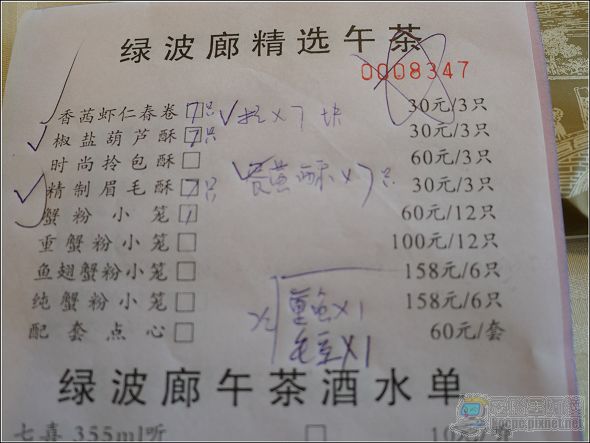 绿波廊精选午茶
0008347
香茜虾仁春卷 7只 30元/3只
椒盐葫芦酥 7只 30元/3只
时尚拎包酥 60元/3只
精制眉毛酥 7只 30元/3只
蟹粉小笼 1 60元/12只
重蟹粉小笼 100元/12只
鱼翅蟹粉小笼 158元/6只
纯蟹粉小笼 158元/6只
配套点心 60元/套
x7块
酥x7只
x1
毛豆x1
绿波廊午茶酒水单
七喜 355ml听